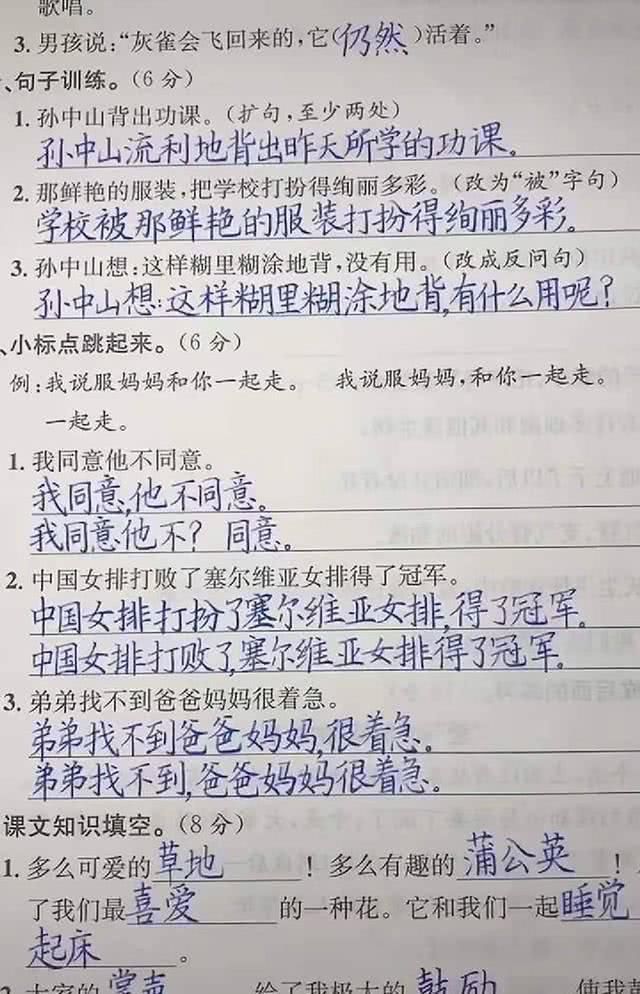 歌唱。
3. 男孩说：“灰雀会飞回来的，它（仍然）活着。”
、句子训练。（6分）
1. 孙中山背出功课。（扩句，至少两处）
孙中山流利地背出昨天所学的功课。
2. 那鲜艳的服装，把学校打扮得绚丽多彩。（改为“被”字句）
学校被那鲜艳的服装打扮得绚丽多彩。
3. 孙中山想：这样糊里糊涂地背，没有用。（改成反问句）
孙中山想：这样糊里糊涂地背，有什么用呢？
、小标点跳起来。（6分）
例：我说服妈妈和你一起走。 我说服妈妈，和你一起走。
一起走。
1. 我同意他不同意。
我同意，他不同意。
我同意他不？同意。
2. 中国女排打败了塞尔维亚女排得了冠军。
中国女排打扮了塞尔维亚女排，得了冠军。
中国女排打败了，塞尔维亚女排得了冠军。
3. 弟弟找不到爸爸妈妈很着急。
弟弟找不到爸爸妈妈，很着急。
弟弟找不到，爸爸妈妈很着急。
课文知识填空。（8分）
1. 多么可爱的草地！多么有趣的蒲公英！
了我们最喜爱的一种花。它和我们一起睡觉
起床。
大家的掌声给了我极大的鼓励 使我